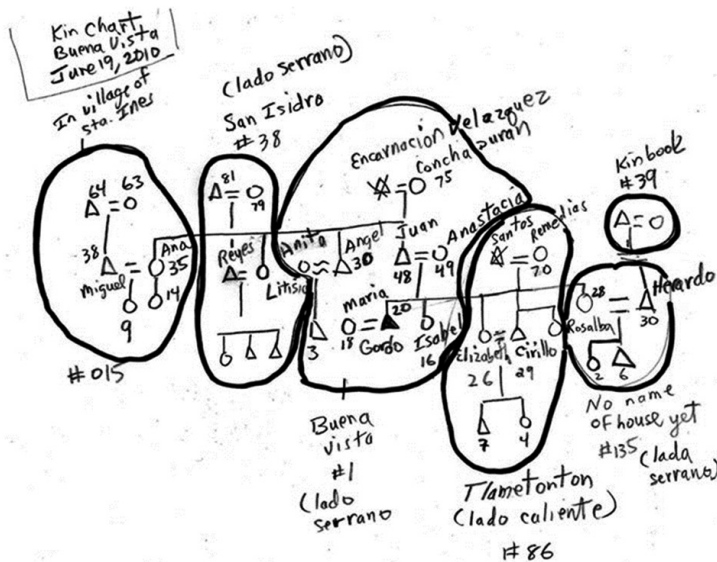 Kin Chart
Buena Vista
June 19, 2010
In village of
Sta. Ines
(lado serrano)
San Isidro
#38
Encarnacion Velazquez
Concha Duran
75
Kinbook
#39
64 63
81
79
38
Miguel
Ana
35
14
9
#015
Reyes
Litisia
Anita
Angel
30
3
Juan
48
Anastacia
49
Maria
18
20
Gordo
Isabel
16
Santos
Remedias
70
Elizabeth
26
Cirillo
29
7 4
28
Rosalba
Herardo
30
2 6
Buena
vista
#1
(lado
serrano
Tlametonton
(lado caliente)
#86
No name
of house yet
#135
(lada
serrano)